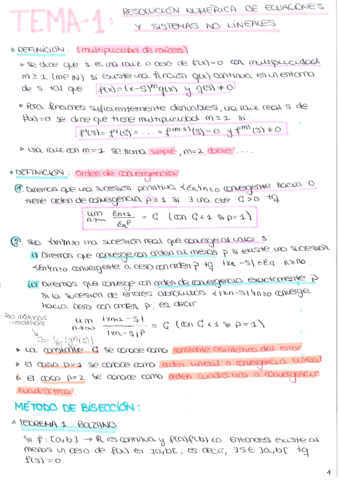 TEMA-1: RESOLUCIÓN NUMÉRICA DE ECUACIONES
Y SISTEMAS NO LINEALES
• DEFINICIÓN: (multiplicidad de raíces)
• se dice que s es una raíz o cero de f(x)=0 con multiplicidad
m≥1 (m∈N) si existe una función q(x) continua en un entorno
de s tal que f(x)=(x-s)^m q(x) y q(s)≠0
• Para funciones suficientemente derivables, una raíz real s de
f(x)=0 se dice que tiene multiplicidad m≥1 si:
f(s)=f'(s)=...=f^(m-1)(s)=0 y f^m(s)≠0
• Una raíz con m=1 se llama simple, m=2 doble...
• DEFINICIÓN: Orden de convergencia
① Diremos que una sucesión positiva {εn}n≥0 convergente hacia 0
tiene orden de convergencia p≥1 si ∃ una cte C>0 tq
lim n→∞ εn+1/εn^p = C (con C<1 si p=1)
② Sea {xn}n≥0 una sucesión real que converge al valor s:
i) Diremos que converge con orden al menos p si existe una sucesión
{εn}n≥0 convergente a cero con orden p tq |xn-s|≤εn n≥0
ii) Diremos que converge con orden de convergencia exactamente p
si la sucesión de errores absolutos {|xn-s|}n≥0 converge
hacia cero con orden p, es decir
lim n→∞ |xn+1-s|/|xn-s|^p = C (con C<1 si p=1)
• La constante C se conoce como constante asintótica del error
• el caso p=1 se conoce como orden lineal o convergencia lineal
• el caso p=2 se conoce como orden cuadrático o convergencia
cuadrática
MÉTODO DE BISECCIÓN:
• TEOREMA 1. BOLZANO
Si f:[a,b] → R es continua y f(a)f(b)<0 entonces existe al
menos un cero de f(x) en ]a,b[, es decir, ∃s∈]a,b[ tq
f(s)=0
1